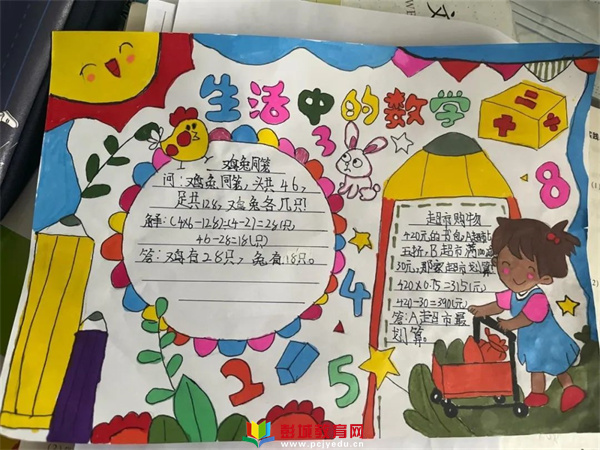 生活中的数学
鸡兔同笼
问：鸡兔同笼，头共46，
足共128，鸡兔各几只
解：(4×46-128)÷(4-2)=28(只)
46-28=18(只)
答：鸡有28只，兔有18只。
超市购物
420元的书包A超市
五折，B超市满
30元，那家超市划算
420×0.75=315(元)
420-30=390(元)
答：A超市最
划算。
3
8
4
2
5
彭城教育网
www.pcjyedu.cn